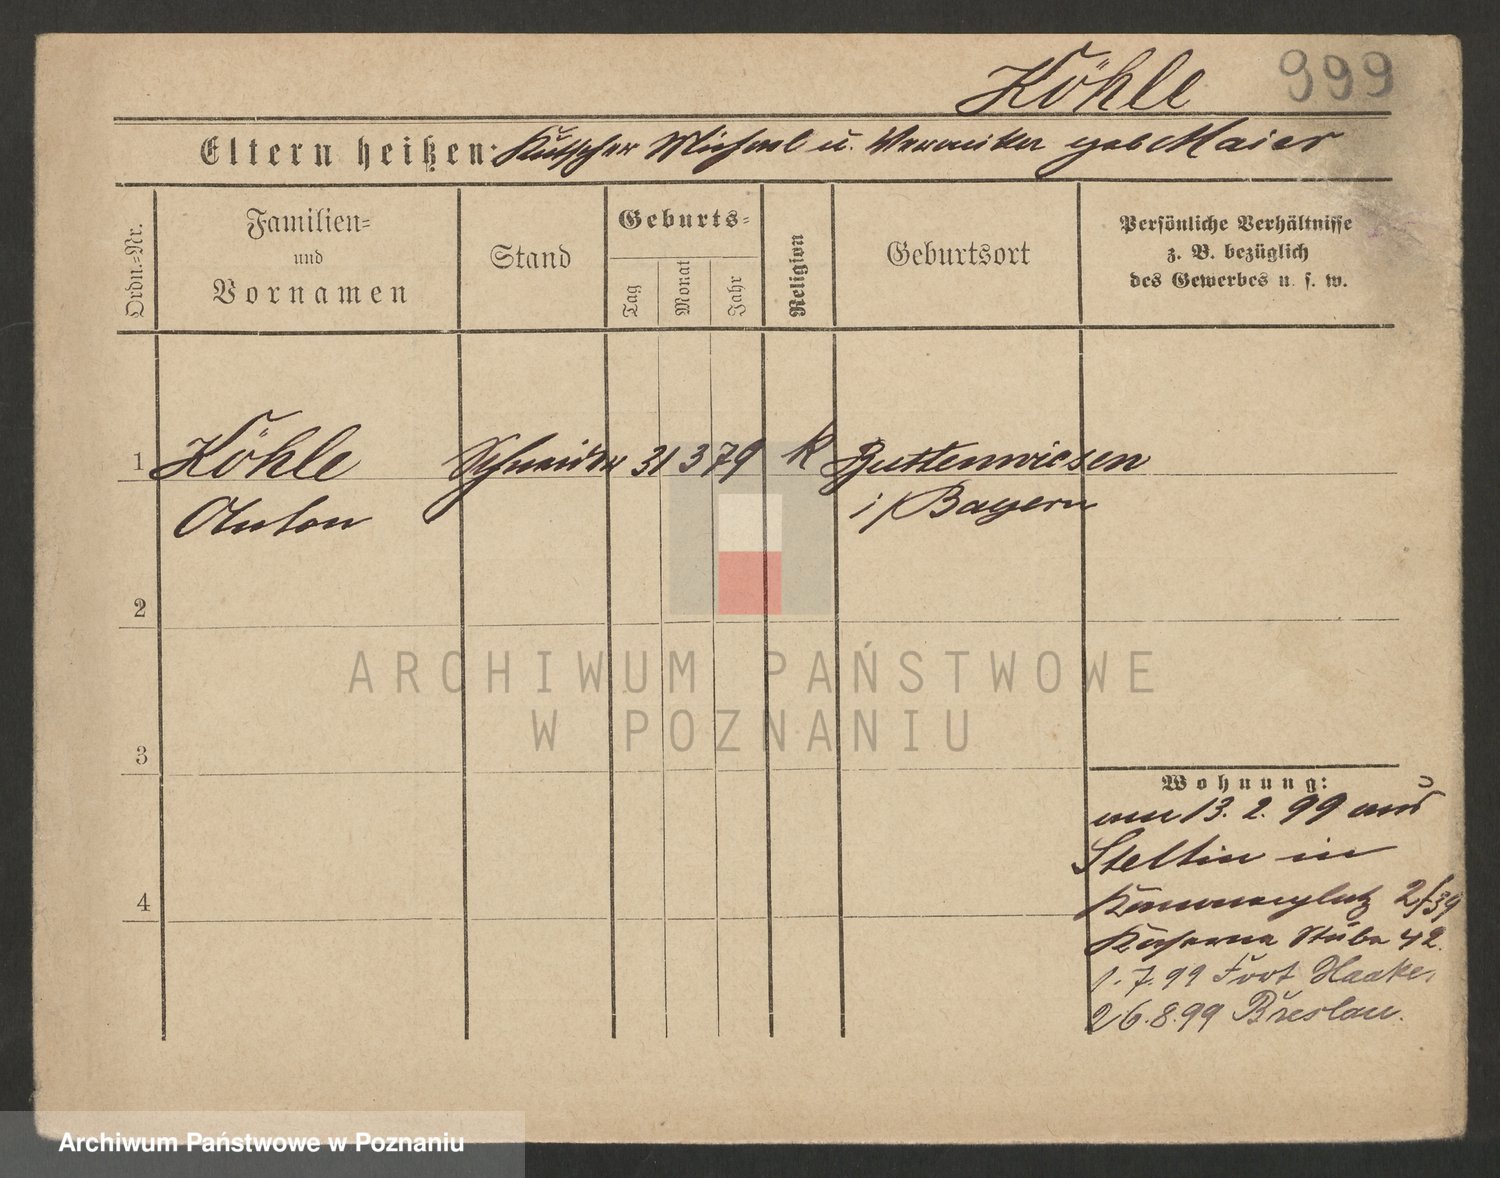 Köhle 999
Eltern heißen: Kutscher Michael u. Veronika geb Maier
Ordn.-Nr.
Familien-
und
Vornamen
Stand
Geburts-
Tag
Monat
Jahr
Religion
Geburtsort
Persönliche Verhältnisse
z. B. bezüglich
des Gewerbes u. s. w.
1 Köhle Schneider 31 3 79 K Buttenwiesen
Anton i/Bayern
2
3
4
Wohnung:
am 13. 2. 99 aus
Stettin in
Kanonenplatz 2/39
Kaserne Stube 42.
1. 7. 99 Fort Haake.
26. 8. 99 Breslau.
ARCHIWUM PAŃSTWOWE
W POZNANIU
Archiwum Państwowe w Poznaniu